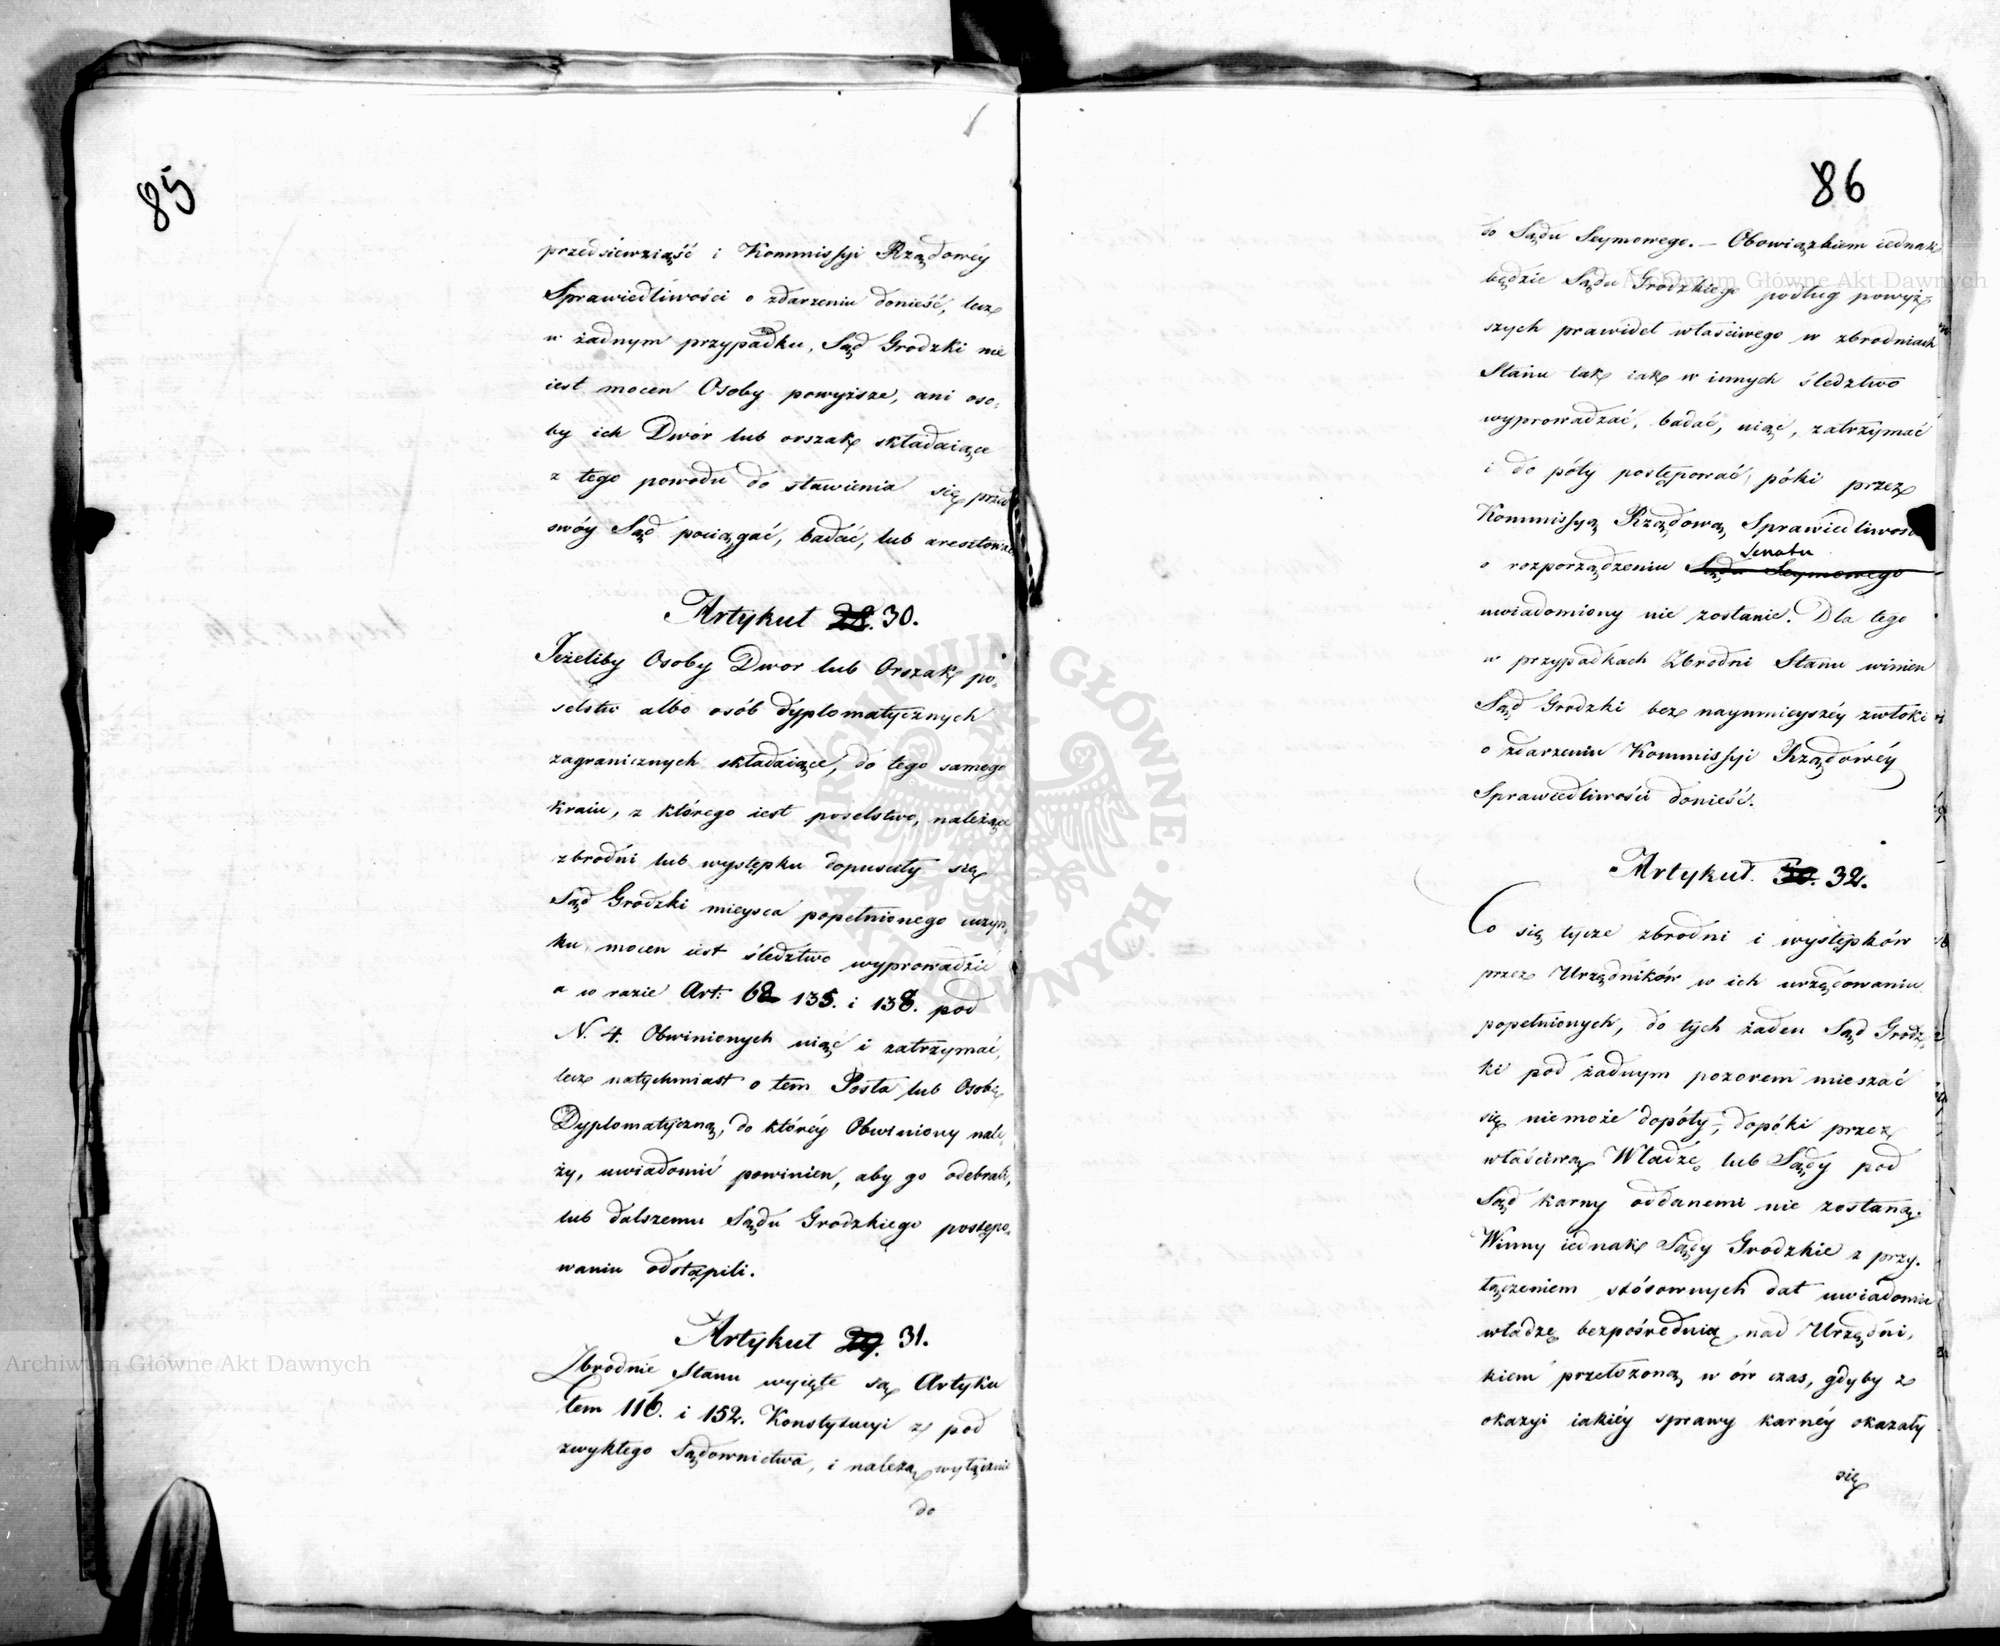 85
przedsiewziąść i Kommissyi Rządowéy
Sprawiedliwości o zdarzeniu donieść, lecz
w żadnym przypadku, Sąd Grodzki nie
iest mocen Osoby powyższe, ani oso-
by ich Dwór lub orszak składaiące
z tego powodu do stawienia się przed
swóy Sąd pociągać, badać, lub aresztować
Artykuł 28. 30.
Jeżeliby Osoby Dwor lub Orszak po-
selstw albo osób dyplomatycznych
zagranicznych składaiące, do tego samego
kraiu, z którego iest poselstwo, należące
zbrodni lub występku dopuściły się
Sąd Grodzki mieysca popełnionego uczyn-
ku, mocen iest śledztwo wyprowadzić
a w razie Art: 68 135. i 138. pod
N. 4. Obwinionych uiąć i zatrzymać,
lecz natychmiast o tem Posła lub Osobę
Dyplomatyczną, do któréy Obwiniony nale-
ży, uwiadomić powinien, aby go odebrali,
lub dalszemu Sądu Grodzkiego postępo-
waniu odstąpili.
Artykuł 29. 31.
Zbrodnie Stanu wyięte są Artyku
łem 116. i 152. Konstytucyi z pod
zwykłego Sądownictwa, i należą wyłącznie
do
86
do Sądu Seymowego. – Obowiązkiem iednak
będzie Sądu Grodzkiego podług powyż-
szych prawideł właściwego w zbrodniach
Stanu tak iak w innych śledztwo
wyprowadzać, badać, uiąć, zatrzymać
i do póty postępować, póki przez
Kommissyą Rządową Sprawiedliwości
Senatu
o rozporządzeniu Sądu Seymowego
uwiadomiony nie zostanie. Dla tego
w przypadkach Zbrodni Stanu winien
Sąd Grodzki bez naymnieyszéy zwłoki
o zdarzeniu Kommissyi Rządowéy
Sprawiedliwości donieść.
Artykuł. 30. 32.
Co się tycze zbrodni i występków
przez Urzędników w ich urzędowaniu
popełnionych, do tych żaden Sąd Grodz-
ki pod żadnym pozorem mieszać
się nie może dopóty, dopóki przez
właściwą Władzę lub Sądy pod
Sąd karny oddanemi nie zostaną.
Winny iednak Sądy Grodzkie z przy-
łączeniem stósownych dat uwiadomić
władzę bezpośrednią nad Urzędni-
kiem przełożoną w ów czas, gdyby z
okazyi iakiéy sprawy karnéy okazały
się
Archiwum Główne Akt Dawnych
Archiwum Główne Akt Dawnych
ARCHIWUM GŁÓWNE AKT DAWNYCH